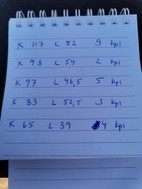 K 113 L 52 9 kpl
K 93 L 54 2 kpl
K 77 L 46,5 5 kpl
K 83 L 52,5 3 kpl
K 65 L 39 4 kpl